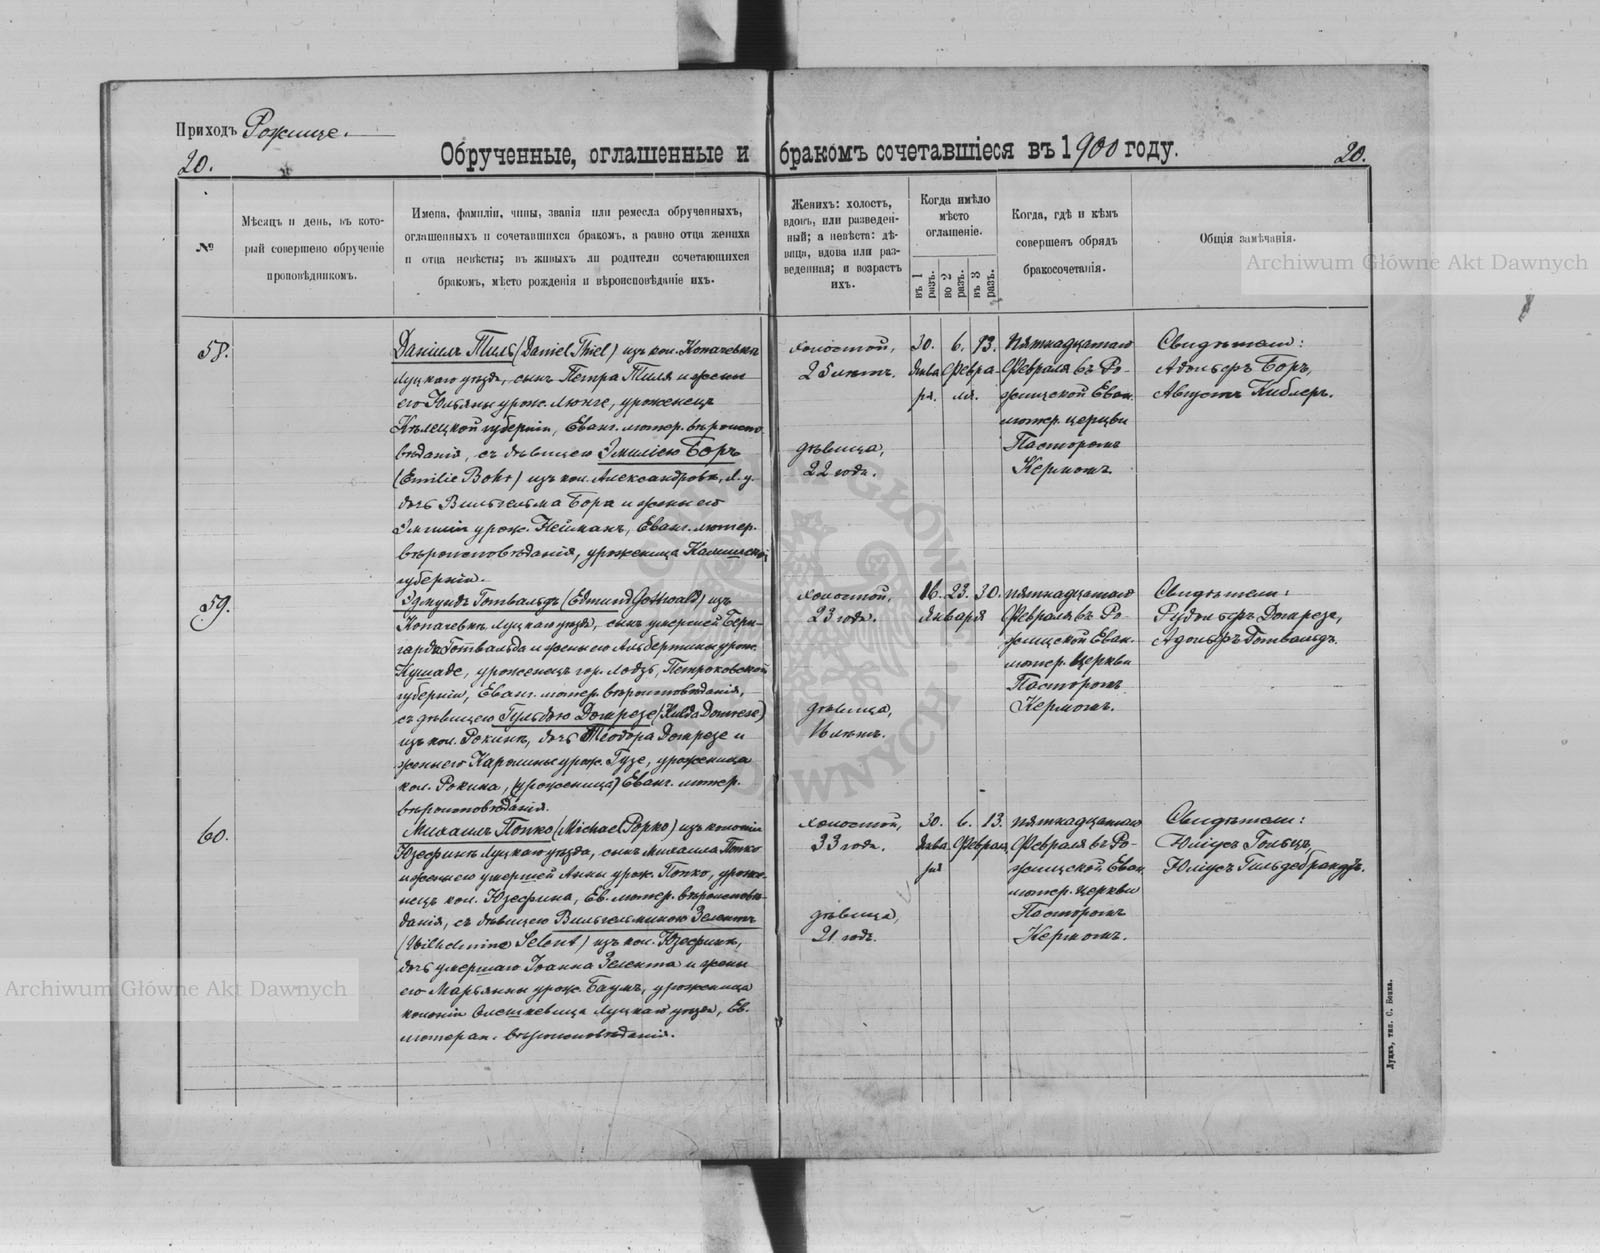 Приходъ Рожище.
20.
Обрученные, оглашенные и бракомъ сочетавшіеся въ 1900 году.
20.
№
Мѣсяцъ и день, въ кото-
рый совершено обрученіе
проповѣдникомъ.
Имена, фамиліи, чины, званія или ремесла обрученныхъ,
оглашенныхъ и сочетавшихся бракомъ, а равно отца жениха
и отца невѣсты; въ живыхъ ли родители сочетающихся
бракомъ, мѣсто рожденія и вѣроисповѣданіе ихъ.
Женихъ: холостъ,
вдовъ, или разведен-
ный; а невѣста: дѣ-
вица, вдова или раз-
веденная; и возрастъ
ихъ.
Когда имѣло
мѣсто
оглашеніе.
въ 1 разъ.
во 2 разъ.
въ 3 разъ.
Когда, гдѣ и кѣмъ
совершенъ обрядъ
бракосочетанія.
Общія замѣчанія.
58.
Даніилъ Тиль (Daniel Thiel) изъ кол. Копачевка
Луцкаго уѣзда, сынъ Петра Тиля и жены
его Юльяны урож. Люнге, уроженецъ
Кѣлецкой губерніи, Еванг. лютер. вѣроиспо-
вѣданія, съ дѣвицею Эмиліею Боръ
(Emilie Bohr) изъ кол. Александровка, Л. у.
дочь Вильгельма Бора и жены его
Эмиліи урож. Нейманъ, Еванг. лютер.
вѣроисповѣданія, уроженица Калишской
губерніи.
холостой,
25 лѣтъ.
дѣвица,
22 года.
30. 6. 13.
Янва Февра-
ря. ля.
пятнадцатаго
Февраля въ Ро-
жищской Еван.
лютер. церкви
Пасторомъ
Кермомъ.
Свидѣтели:
Адольфъ Боръ,
Августъ Киблеръ.
59.
Эдмундъ Готвальдъ (Edmund Gottwald) изъ
Копачевки Луцкаго уѣзда, сынъ умершей Берн-
гарда Готвальда и жены его Альбертины урож.
Кушаде, уроженецъ гор. Лодзь, Петроковской
губерніи, Еванг. лютер. вѣроисповѣданія,
съ дѣвицею Гульдою Домрезе (Hulda Domrese)
изъ кол. Рокини, дочь Теодора Домрезе и
жены его Каролины урож. Гузе, уроженица
кол. Рокина, (уроженица) Еванг. лютер.
вѣроисповѣданія.
холостой,
23 года.
дѣвица,
16 лѣтъ.
16. 23. 30.
Января
пятнадцатаго
Февраля въ Ро-
жищской Еван.
лютер. Церкви
Пасторомъ
Кермомъ.
Свидѣтели:
Рудольфъ Домрезе,
Адольфъ Готвальдъ.
60.
Михаилъ Попко (Michael Popko) изъ колоніи
Юзефинъ Луцкаго уѣзда, сынъ Михаила Попко
и жены его умершей Анны урож. Попко, уроже-
нецъ кол. Юзефина, Ев. лютер. вѣроисповѣ-
данія, съ дѣвицею Вильгельминою Зелентъ
(Wilhelmine Selent) изъ кол. Юзефинъ,
дочь умершаго Іоанна Зелента и жены
его Марьянны урож. Баумъ, уроженица
колоніи Олешкевица Луцкаго уѣзда, Ев.
лютеран. вѣроисповѣданія.
холостой,
33 года.
дѣвица,
21 годъ.
30. 6. 13.
Янва Февраля
ря
пятнадцатаго
Февраля въ Ро-
жищской Еван.
лютер. церкви
Пасторомъ
Кермомъ.
Свидѣтели:
Юліусъ Гольцъ,
Юліусъ Гильдебрандтъ.
Луцкъ, тип. С. Бокка.
Archiwum Główne Akt Dawnych
Archiwum Główne Akt Dawnych